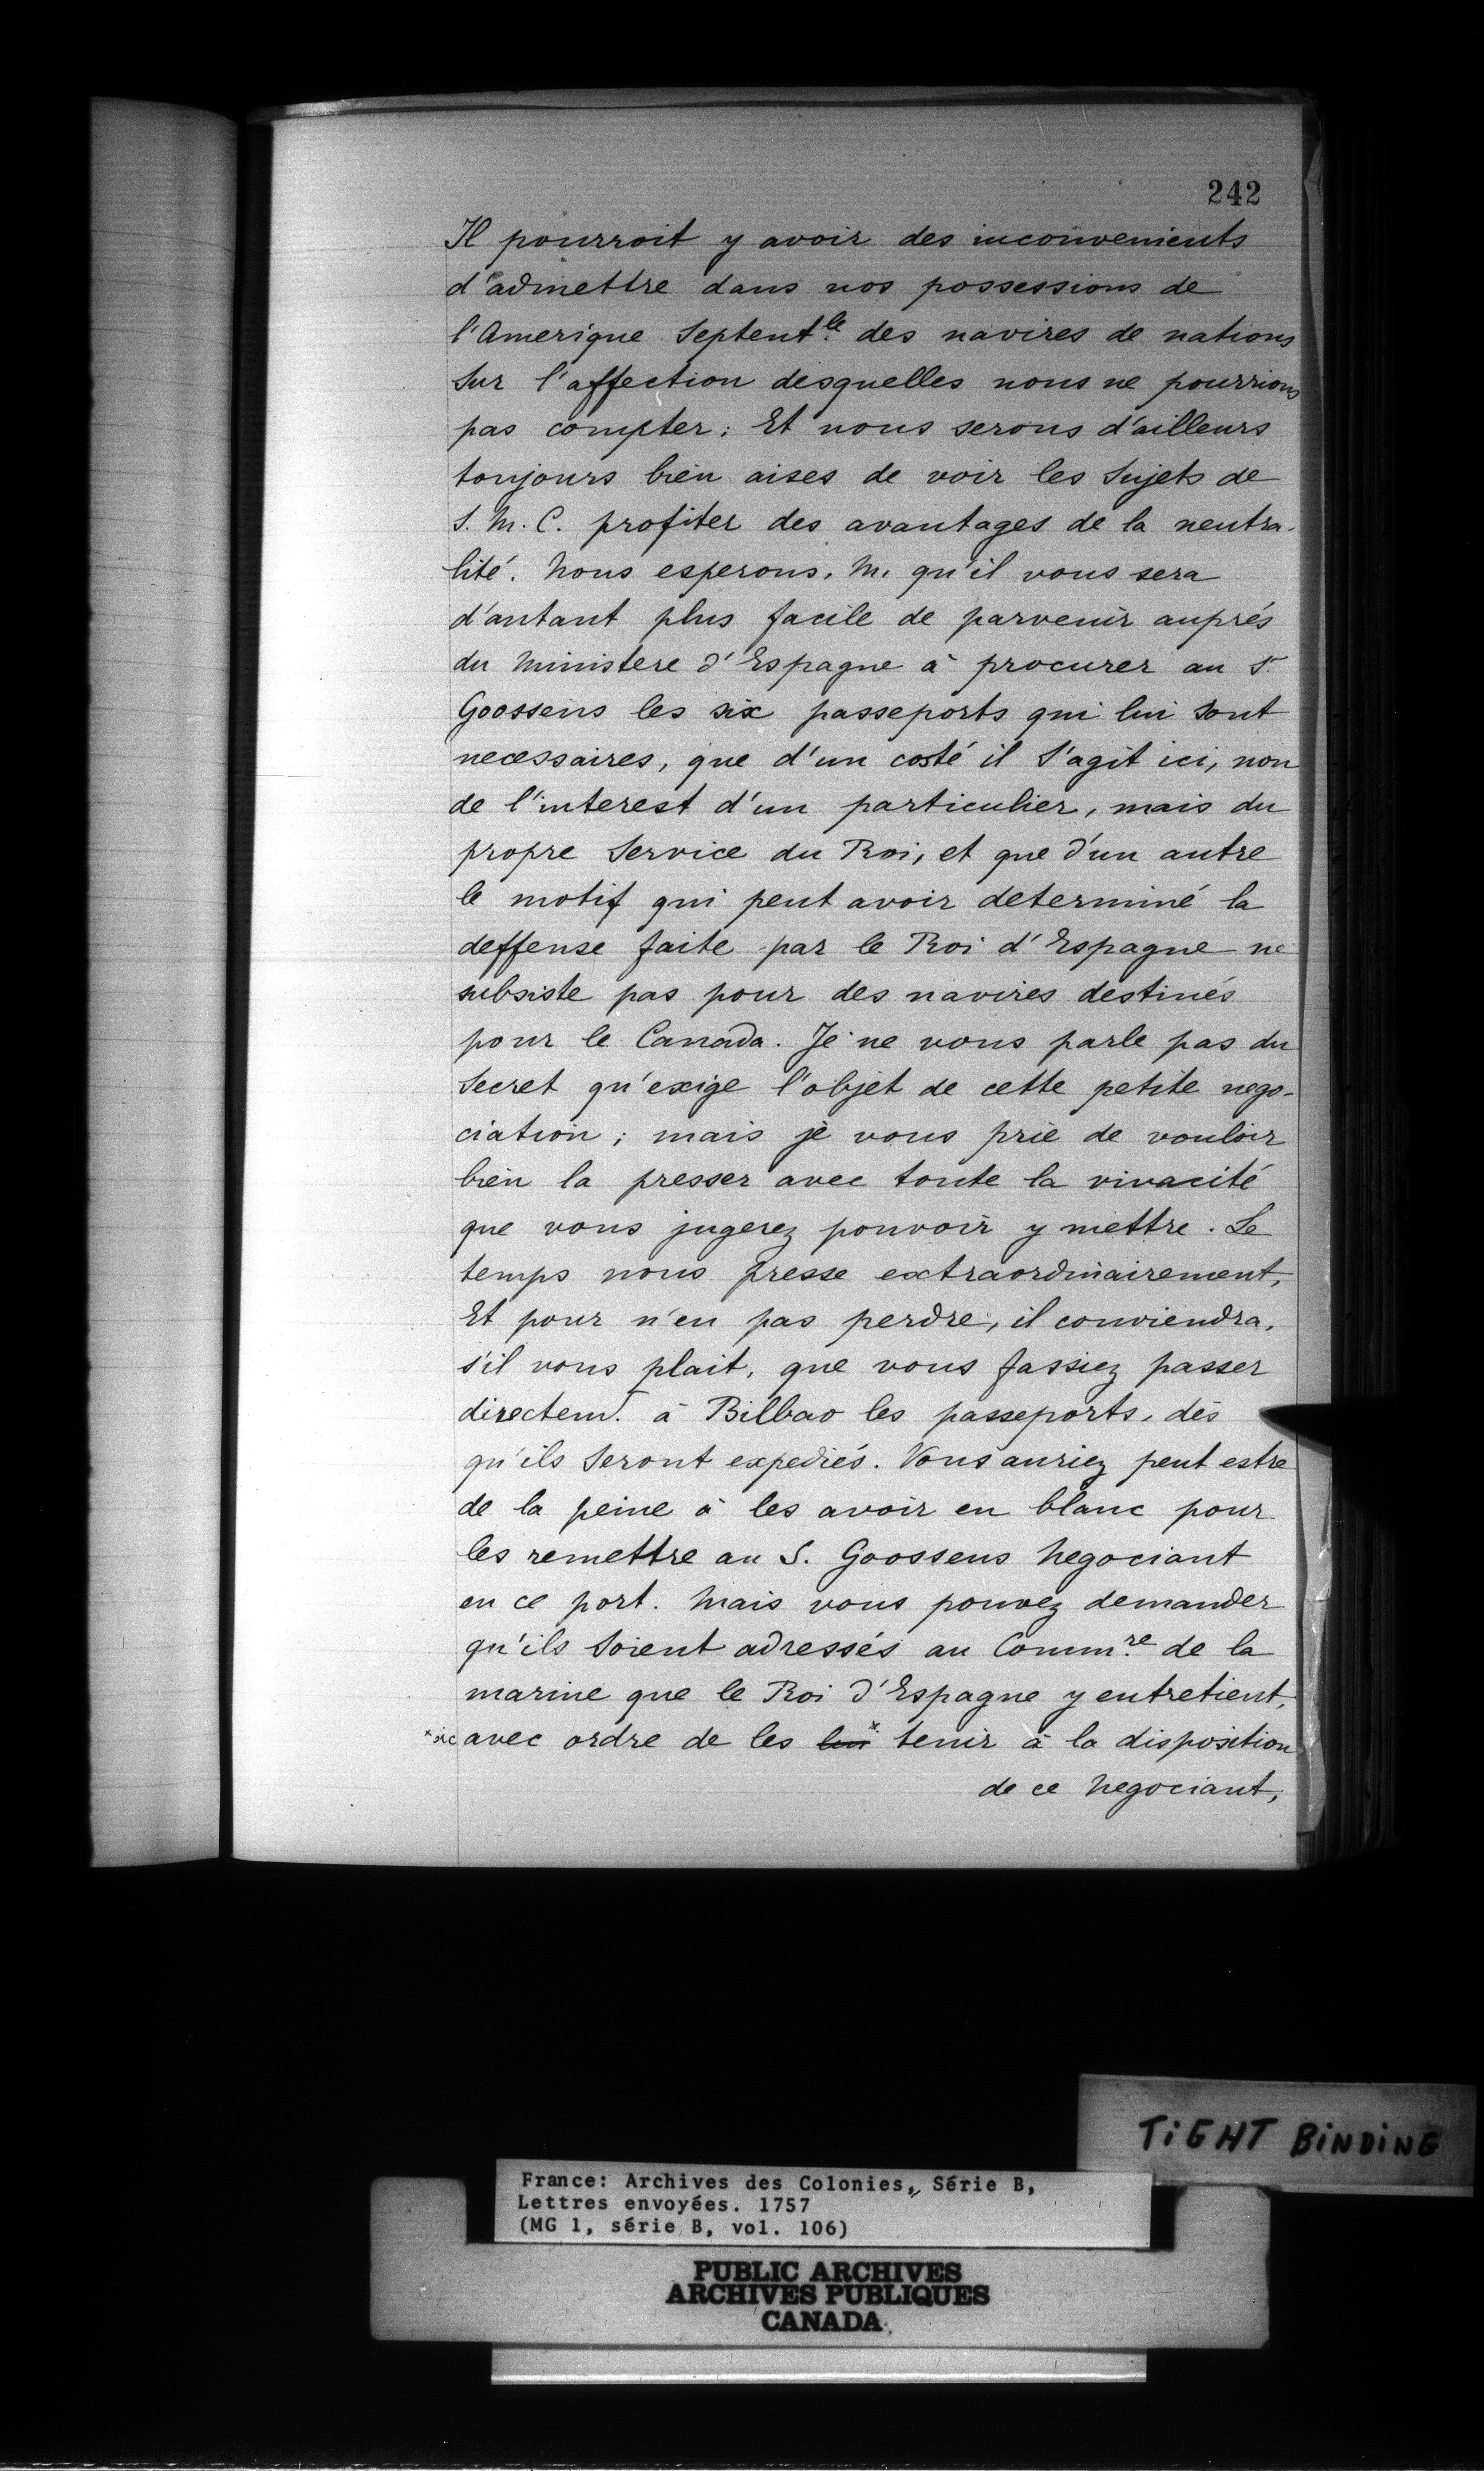 242
Il pourroit y avoir des inconvenients
d'admettre dans nos possessions de
l'Amerique Septent.le des navires de nations
Sur l'affection desquelles nous ne pourrions
pas compter; Et nous serons d'ailleurs
toujours bien aises de voir les Sujets de
S. M. C. profiter des avantages de la neutra-
lité. Nous esperons, M. qu'il vous sera
d'autant plus facile de parvenir auprés
du Ministere d'Espagne à procurer au Sr
Goossens les six passeports qui lui sont
necessaires, que d'un costé il S'agit ici, non
de l'interest d'un particulier, mais du
propre Service du Roi, et que d'un autre
le motif qui peut avoir determiné la
deffense faite par le Roi d'Espagne ne
subsiste pas pour des navires destinés
pour le Canada. Je ne vous parle pas du
Secret qu'exige l'objet de cette petite nego-
ciation; mais je vous prie de vouloir
bien la presser avec toute la vivacité
que vous jugerez pouvoir y mettre. Le
temps nous presse extraordinairement,
Et pour n'en pas perdre, il conviendra,
s'il vous plait, que vous fassiez passer
directemt. à Bilbao les passeports, dès
qu'ils Seront expediés. Vous auriez peut estre
de la peine à les avoir en blanc pour
les remettre au S. Goossens Negociant
en ce port. Mais vous pouvez demander
qu'ils Soient adressés au Comm.re de la
marine que le Roi d'Espagne y entretient,
*sic avec ordre de les lui* tenir à la disposition
de ce Negociant,
TiGHT BiNDiNG
France: Archives des Colonies, Série B,
Lettres envoyées. 1757
(MG 1, série B, vol. 106)
PUBLIC ARCHIVES
ARCHIVES PUBLIQUES
CANADA